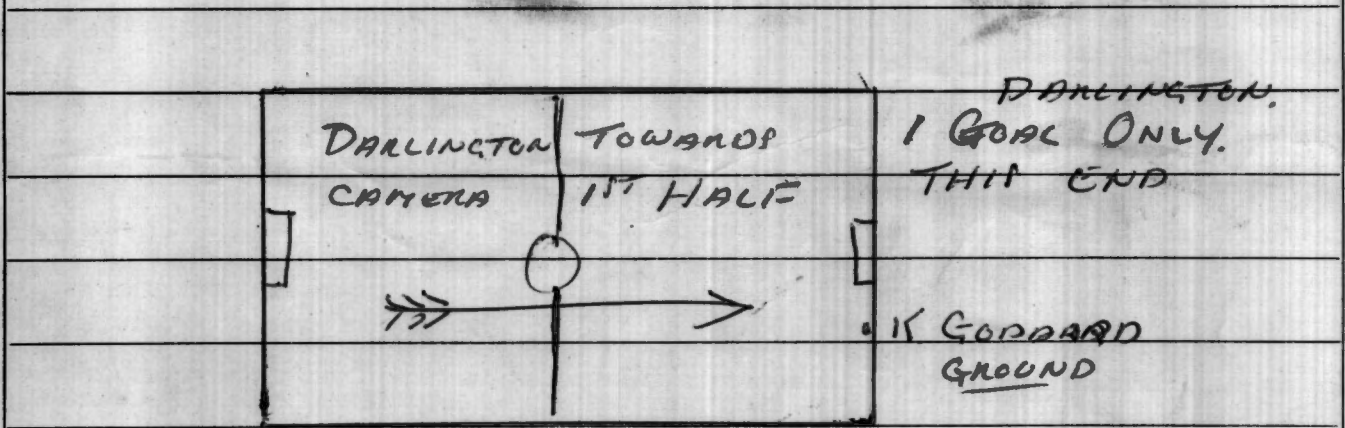 DARLINGTON TOWARDS
CAMERA 1ST HALF
DARLINGTON.
1 GOAL ONLY.
THIS END
K GODDARD
GROUND